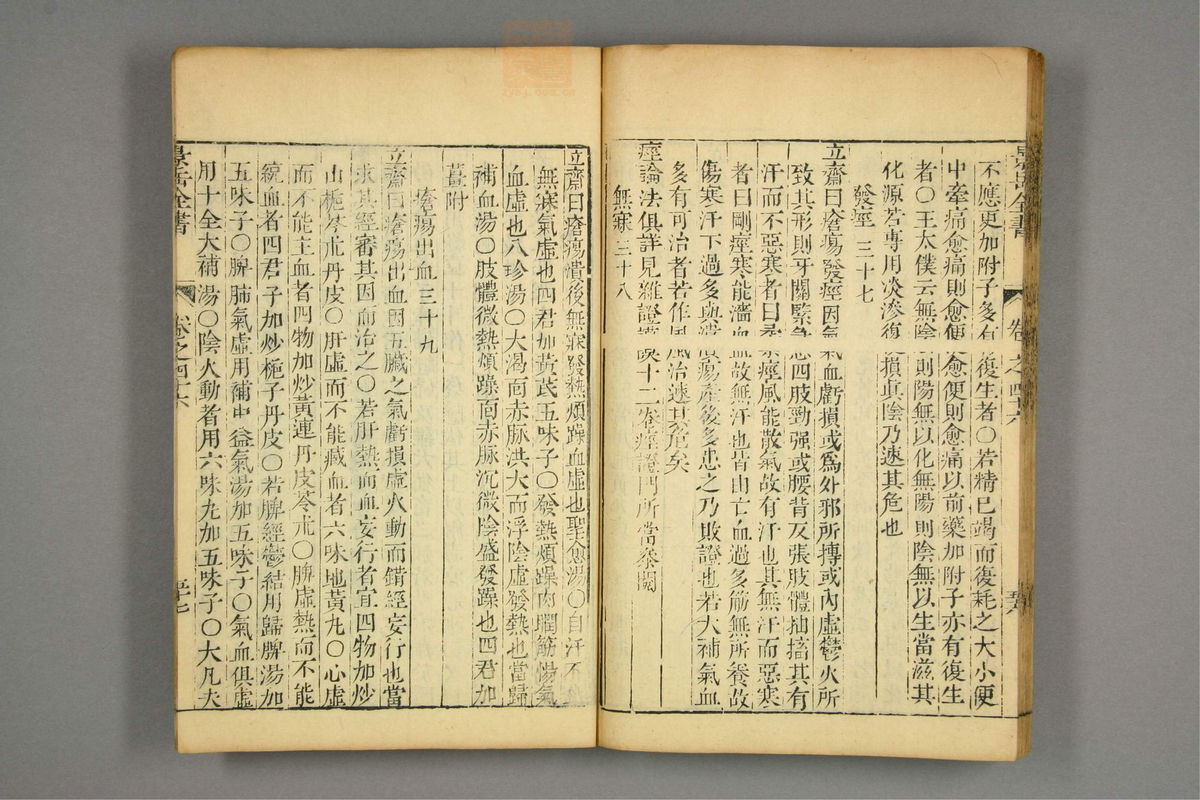 卷之四十六
不應更加附子多有復生者〇若精已竭而復耗之大小便
中牽痛愈痛則愈便愈便則愈痛以前藥加附子亦有復生
者〇王太僕云無陰則陽無以化無陽則陰無以生當滋其
化源若專用淡滲復損眞陰乃速其危也
發痙 三十七
立齋曰瘡瘍發痙因氣血虧損或爲外邪所摶或內虛鬱火所
致其形則牙關緊急四肢勁强或腰背反張肢體抽搐其有
汗而不惡寒者曰柔痙風能散氣故有汗也其無汗而惡寒
者曰剛痙寒能濇血故無汗也皆由亡血過多筋無所養故
傷寒汗下過多與潰瘍產後多患之乃敗證也若大補氣血
多有可治者若作風治速其危矣
痙論法俱詳見雜證謨十二卷痙證門所當參閱
無寐 三十八
立齋曰瘡瘍潰後無寐發熱煩躁血虛也聖愈湯〇自汗不
無寐氣虛也四君加黃芪五味子〇發熱煩躁肉瞤筋惕氣
血虛也八珍湯〇大渴面赤脉洪大而浮陰虛發熱也當歸
補血湯〇肢體微熱煩躁面赤脉沉微陰盛發躁也四君加
薑附
瘡瘍出血 三十九
立齋曰瘡瘍出血因五臟之氣虧損虛火動而錯經妄行也當
求其經審其因而治之〇若肝熱而血妄行者宜四物加炒
山梔芩朮丹皮〇肝虛而不能藏血者六味地黃丸〇心虛
而不能主血者四物加炒黃連丹皮苓朮〇脾虛熱而不能
統血者四君子加炒梔子丹皮〇若脾經鬱結用歸脾湯加
五味子〇脾肺氣虛用補中益氣湯加五味子〇氣血俱虛
用十全大補湯〇陰火動者用六味丸加五味子〇大凡失
景岳全書 卷之四十六